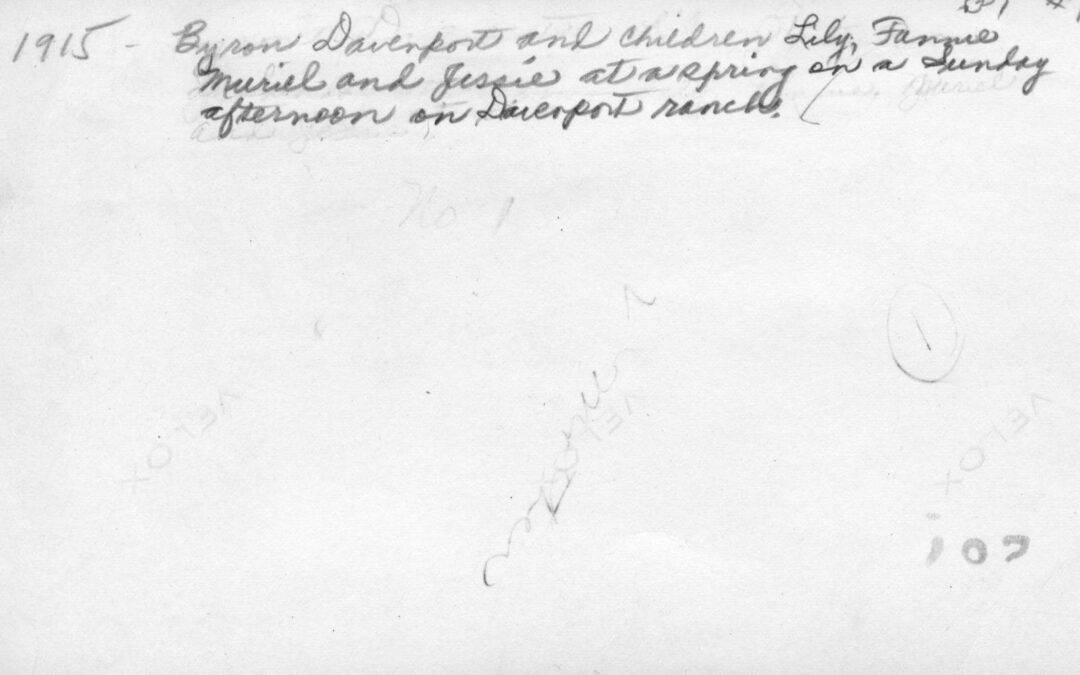 1915 - Byron Davenport and children Lily, Fannie
Muriel and Jessie at a spring on a Sunday
afternoon on Davenport ranch.
No 1
1
VELOX
VELOX
VELOX
107